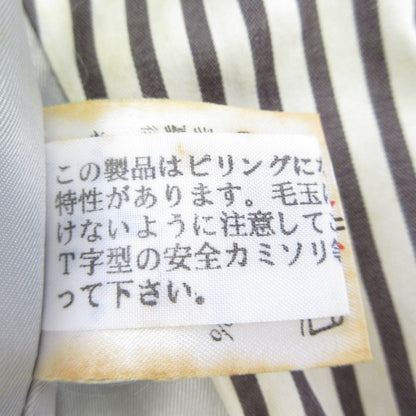 この製品はピリングにな
特性があります。毛玉は
けないように注意して
T字型の安全カミソリ
って下さい。